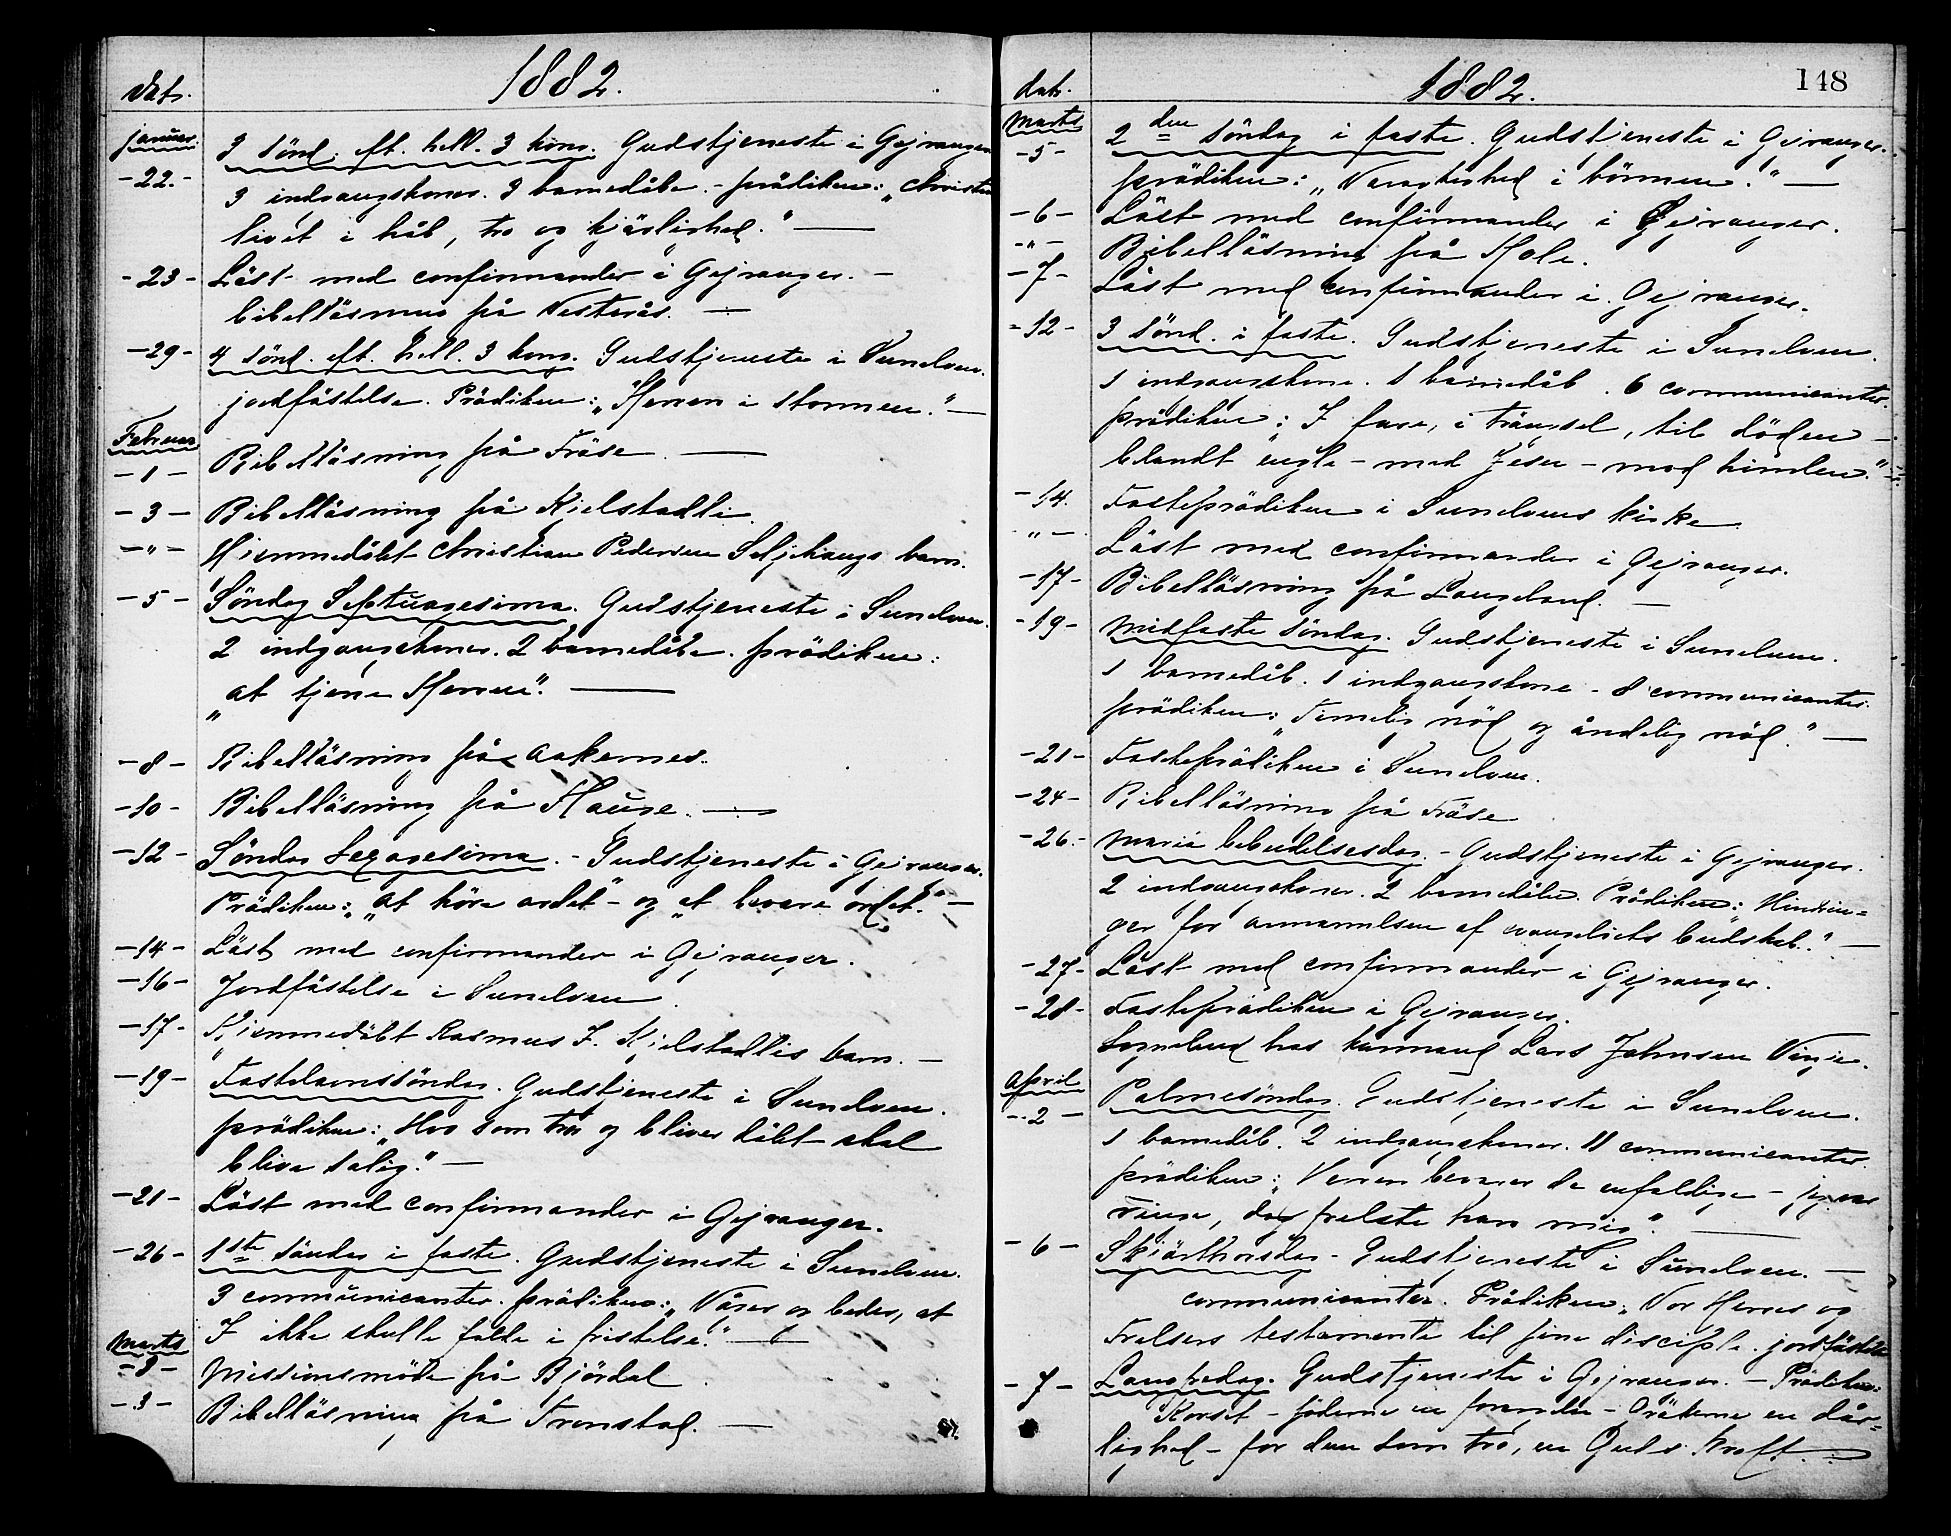 1882.
Dat.
Januar. 3 sönd. eft. hell. 3 kong. Gudstjeneste i Gejranger
-22.- 3 indgangskoner. 3 barnedåbe. - prädiken: „Christen
livet i håb, tro og kjärlighed." —
-23- Läst med confirmander i Gejranger. -
bibelläsning på Vesterås. —
-29- 4 sönd. eft. hell. 3 kong. Gudstjeneste i Sunelven.
jordfästelse. Prädiken: „Herren i stormen." —
Februar
-1- Bibelläsning på Fräse —
-3- Bibelläsning på Kjelstadli.
-"- Hjemmedöbt Christian Pedersen Seljehaugs barn.
-5- Söndag Septuagesima. Gudstjeneste i Sunelven.
2 indgangskoner. 2 barnedåbe. prädiken:
„at tjene Herren". —
-8- Bibelläsning på Aakernes.
-10- Bibelläsning på Hauge. —
-12- Söndag Sexagesima. - Gudstjeneste i Gejranger.
Prädiken: „at höre ordet" - og „at bevare ordet." —
-14- Läst med confirmander i Gejranger.
-16- Jordfästelse i Sunelven.
-17- Hjemmedöbt Rasmus J. Kjelstadlis barn. —
-19- Fastelavnssöndag. Gudstjeneste i Sunelven.
prädiken: „Hvo som tror og bliver döbt skal
blive salig." —
-21- Läst med confirmander i Gejranger.
-26- 1ste söndag i faste. Gudstjeneste i Sunelven.
3 communicanter. prädiken: „Våger og beder, at
I ikke skulle falde i fristelse." —
Marts
-2- Missionsmöde på Björdal.
-3- Bibelläsning på Tronstad. —
148
1882.
dat.
Marts 2den söndag i faste. Gudstjeneste i Gejranger.
-5- prädiken: „Varaghtighed i bönnen." —
-6- Läst med confirmander i Gejranger.
-"- Bibelläsning på Hole.
-7- Läst med confirmander i Gejranger.
-12- 3 sönd. i faste. Gudstjeneste i Sunelven.
1 indgangskone. 1 barnedåb. 6 communicanter.
prädiken: I fare, i trängsel, til döden —
blandt engle - med Jesu - mod himlen."
-14. Fasteprädiken i Sunelvens kirke
" - Läst med confirmander i Gejranger.
-17- Bibelläsning på Langeland. —
-19- Midfaste söndag. Gudstjeneste i Sunelven.
1 barnedåb. 1 indgangskone - 8 communicanter.
prädiken: „Timelig nöd og åndelig nöd." —
-21- Fasteprädiken i Sunelven.
-24- Bibelläsning på Fräse
-26.- Mariä bebudelsesdag. - Gudstjeneste i Gejranger.
2 indgangskoner. 2 barnedåbe. Prädiken: „Hindrin=
ger for annammelsen af evangeliets budskab." —
-27- Läst med confirmander i Gejranger.
-28- Fasteprädiken i Gejranger.
Sognebud hos kårmand Lars Johnsen Vinje.
April
-2- Palmesöndag. Gudstjeneste i Sunelven.
1 barnedåb. 2 indgangskoner. 11 communicanter.
prädiken: „Herren bevarer de enfoldige - jeg var
ringe, dog frelste han mig." —
-6- Skjärthorsdag - Gudstjeneste i Sunelven. —
communicanter. Prädiken „Vor Herres og
Frelsers testamente til sine disciple. jordfästelse
-7- Langfredag. Gudstjeneste i Gejranger. - Prädiken:
Korset - jöderne en forargelse - Gräkerne en dår=
lighed - for den som tro, en Guds kraft. —